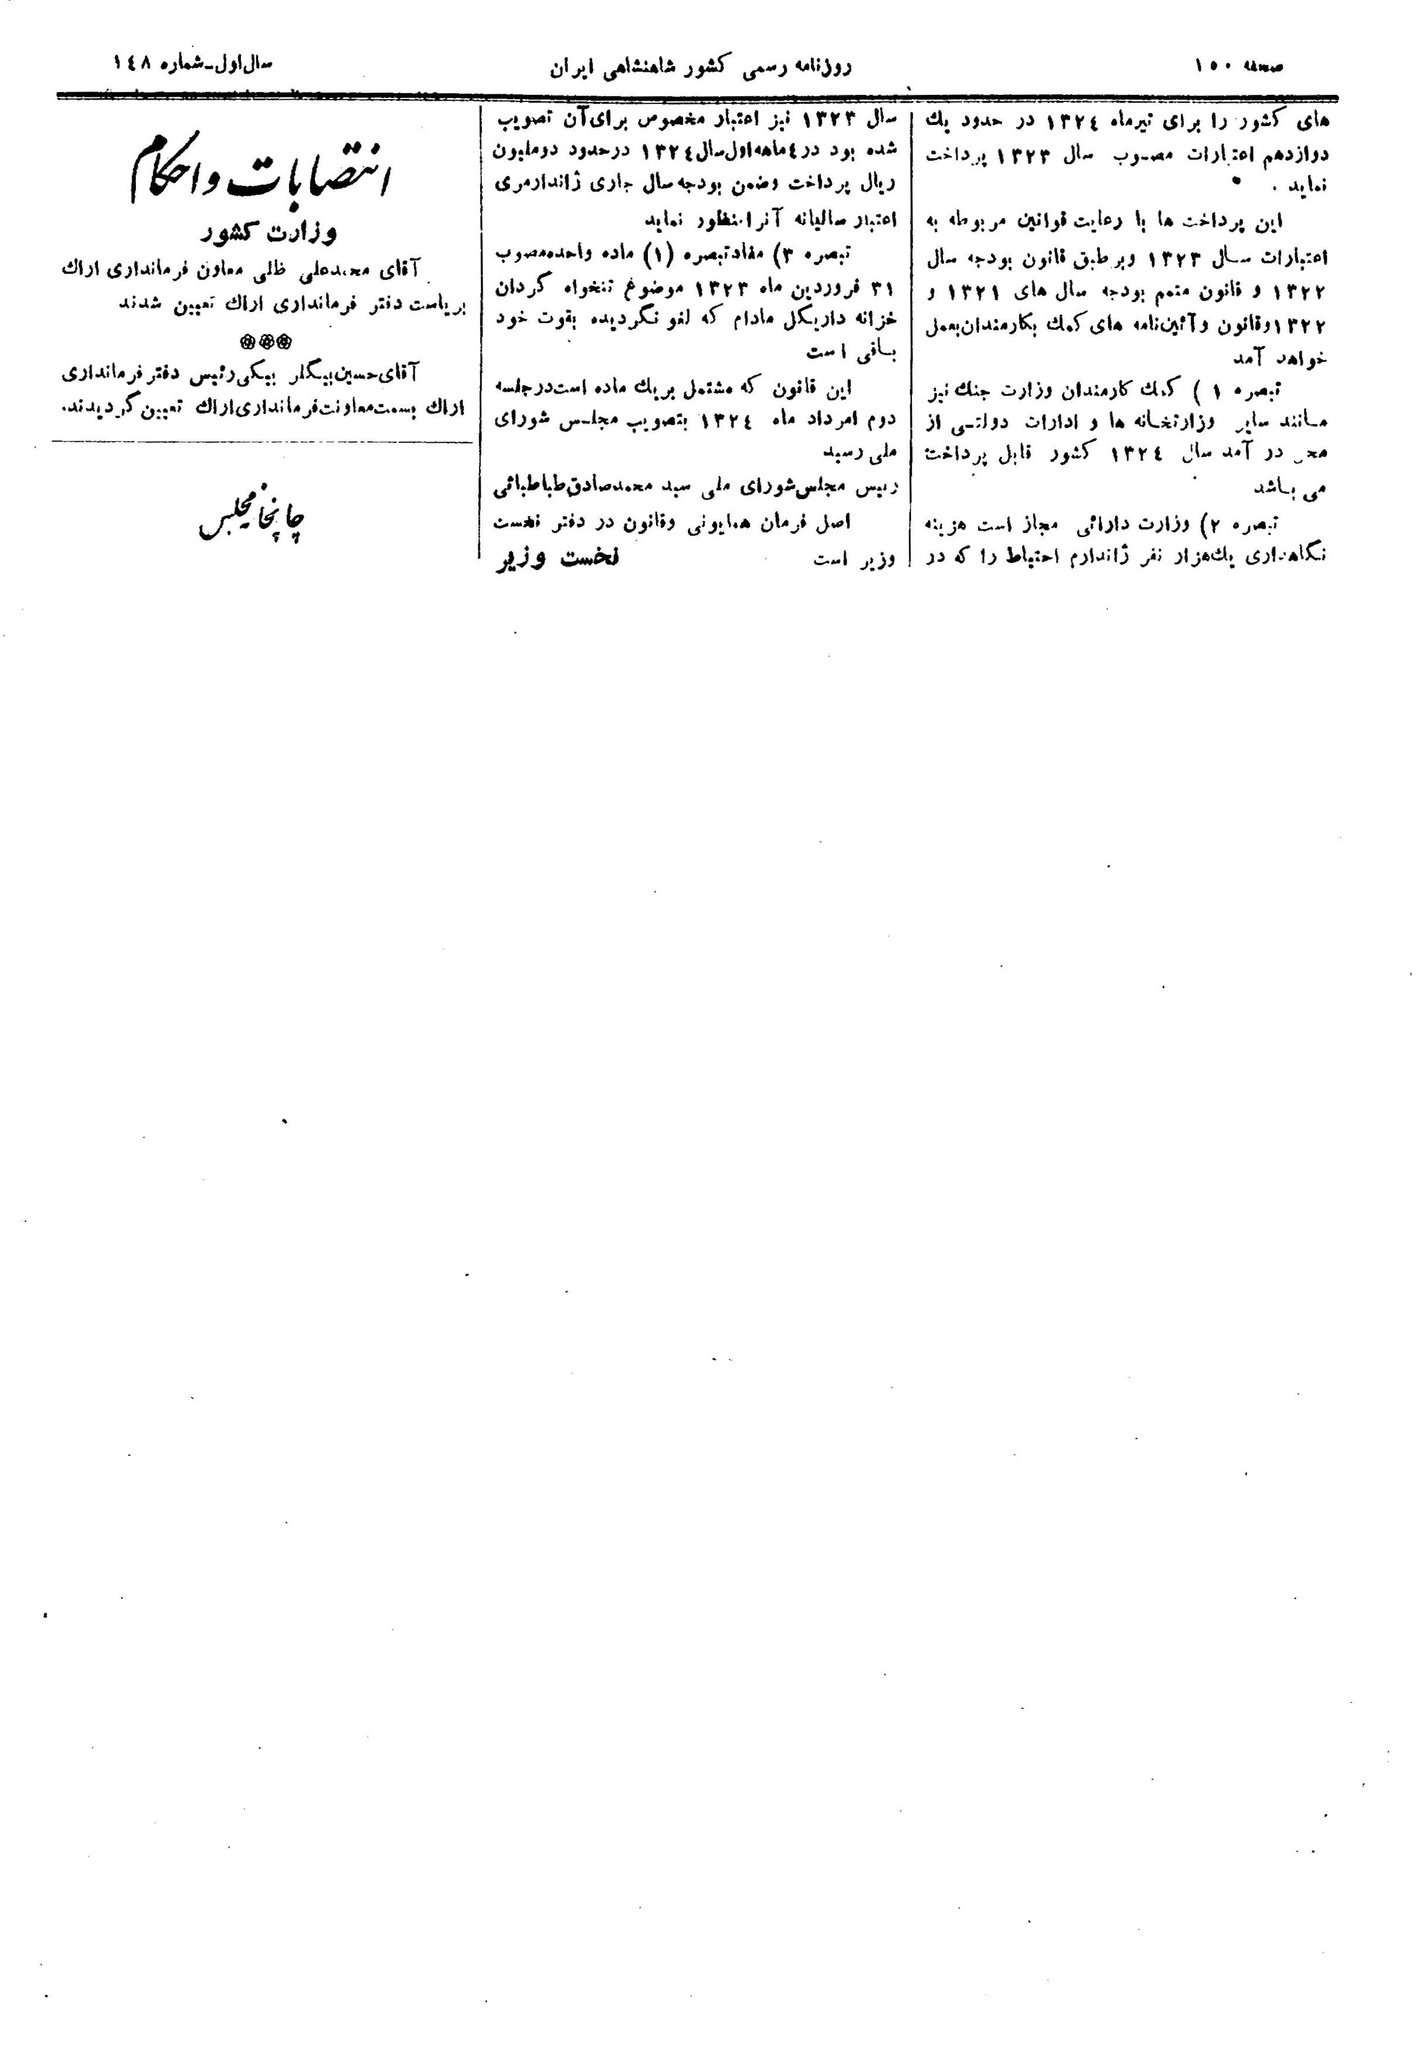 صفحه ۱۵۰
روزنامه رسمی کشور شاهنشاهی ایران
سال اول ـ شماره ۱۴۸
های کشور را برای تیرماه ۱۳۲۴ در حدود یك
دوازدهم اعتبارات مصوب سال ۱۳۲۳ پرداخت
نماید .
این پرداخت ها با رعایت قوانین مربوطه به
اعتبارات سال ۱۳۲۳ و برطبق قانون بودجه سال
۱۳۲۲ و قانون متمم بودجه سال های ۱۳۲۱ و
۱۳۲۲ وقانون و آئین‌نامه های کمك بکارمندان بعمل
خواهد آمد
تبصره ۱ ) کمك کارمندان وزارت جنك نیز
مانند سایر وزارتخانه ها و ادارات دولتی از
محل در آمد سال ۱۳۲۴ کشور قابل پرداخت
می باشد
تبصره ۲) وزارت دارائی مجاز است هزینه
نگاهداری یك‌هزار نفر ژاندارم احتیاط را که در
سال ۱۳۲۳ نیز اعتبار مخصوص برای آن تصویب
شده بود در ۴ ماهه اول سال ۱۳۲۴ در حدود دو ملیون
ریال پرداخت و ضمن بودجه سال جاری ژاندارمری
اعتبار سالیانه آنرا منظور نماید
تبصره ۳) مفاد تبصره (۱) ماده واحده مصوب
۳۱ فروردین ماه ۱۳۲۳ موضوع تنخواه گردان
خزانه داریکل مادام که لغو نگردیده بقوت خود
باقی است
این قانون که مشتمل بریك ماده است در جلسه
دوم امرداد ماه ۱۳۲۴ بتصویب مجلس شورای
ملی رسید
رئیس مجلس شورای ملی سید محمد صادق طباطبائی
اصل فرمان همایونی وقانون در دفتر نخست
وزیر است نخست وزیر
انتصابات و احکام
وزارت کشور
آقای محمدعلی ظلی معاون فرمانداری اراك
بریاست دفتر فرمانداری اراك تعیین شدند
آقای حسین بیگلر بیکی رئیس دفتر فرمانداری
اراك بسمت معاونت فرمانداری اراك تعیین گردیدند.
چاپخانه مجلس